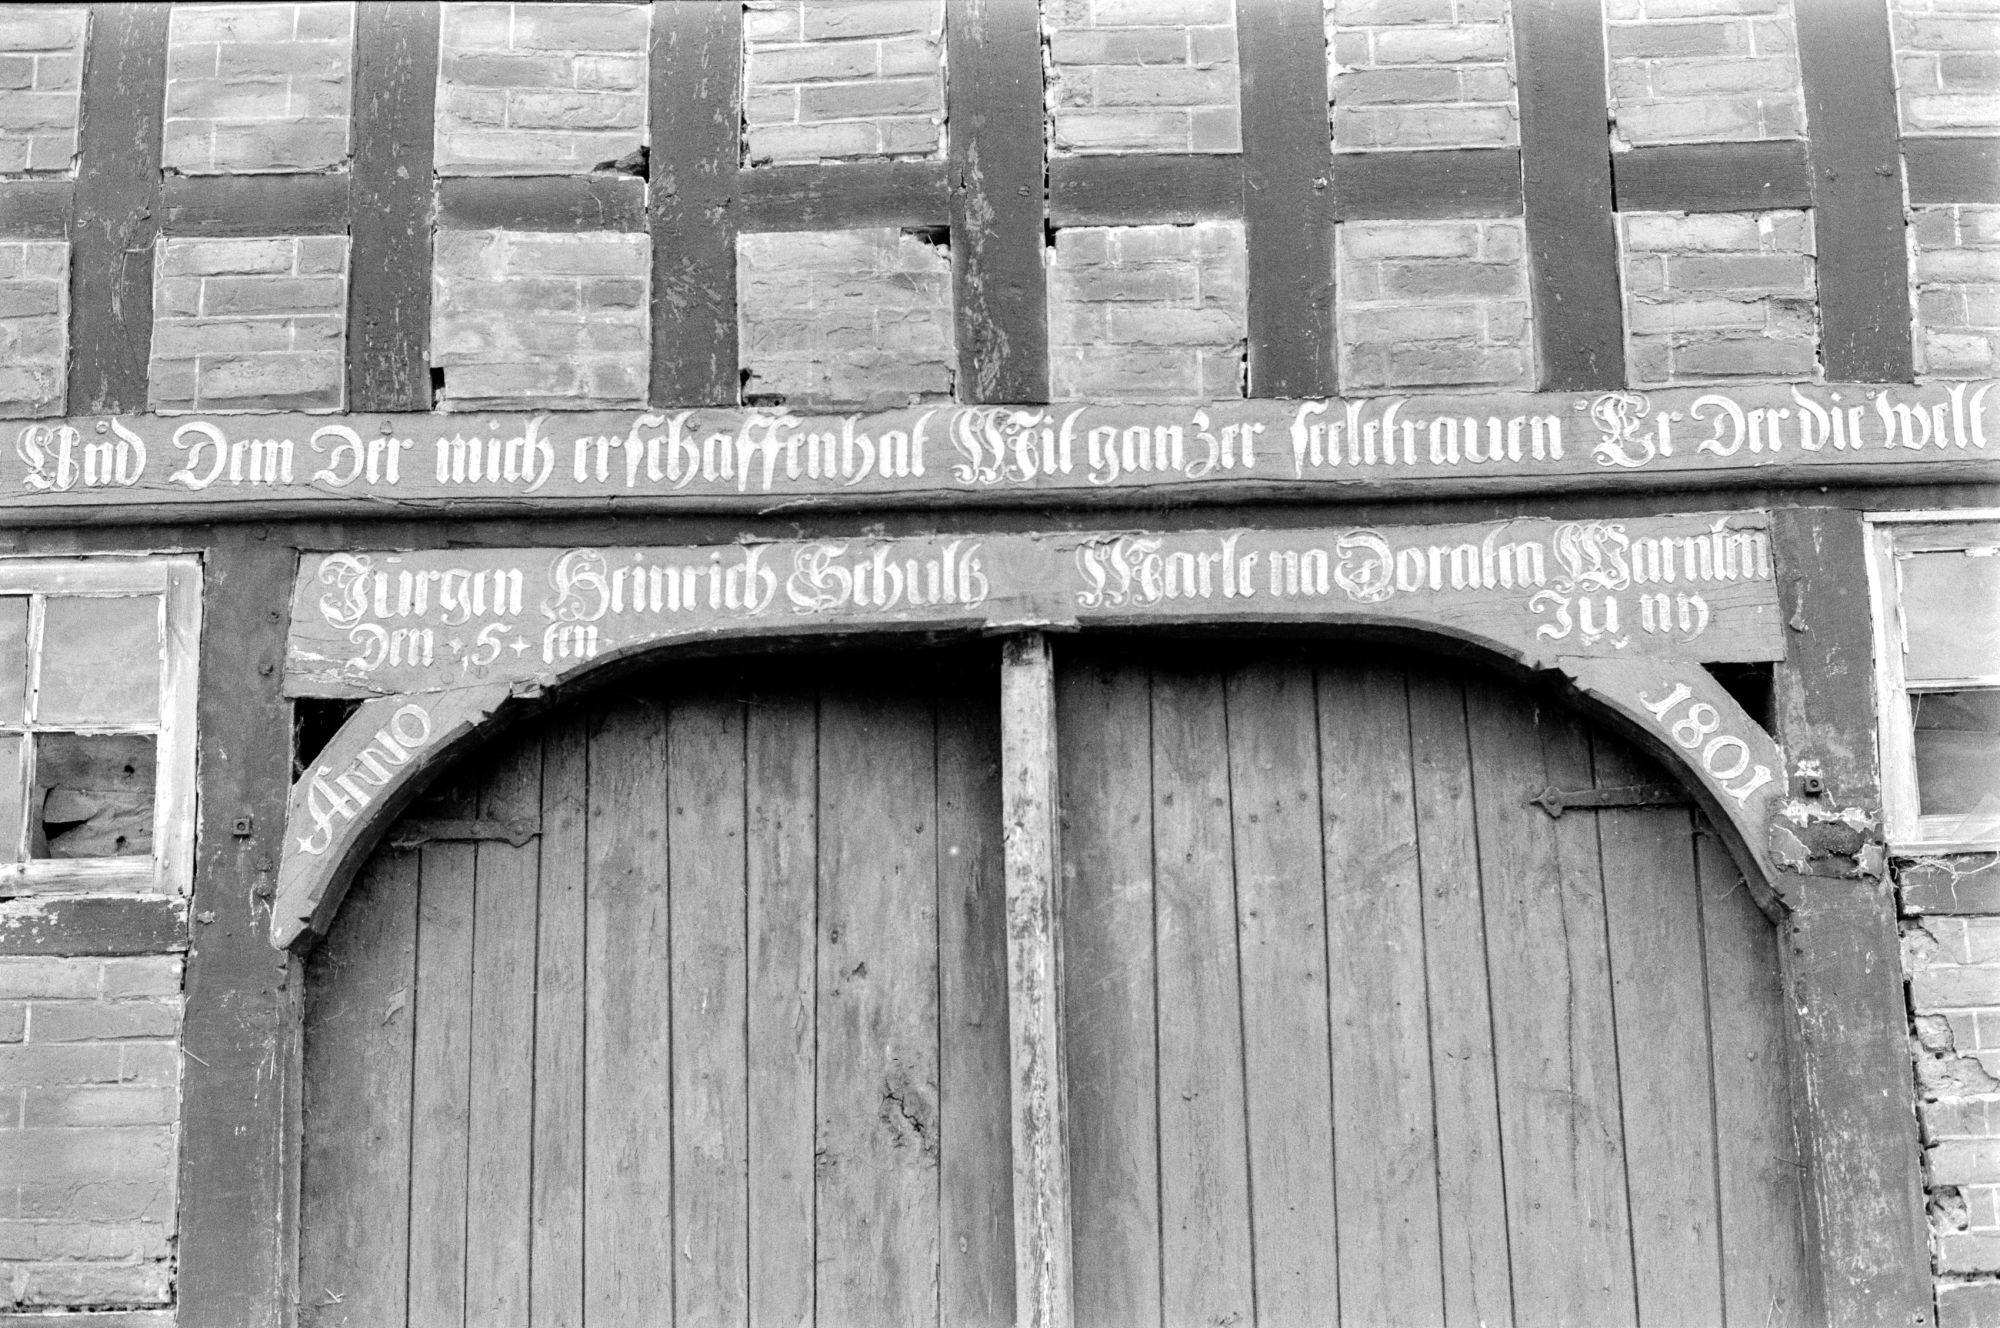 Und Dem Der mich erschaffenhat Mit ganzer seeletrauen Er Der die welt
Jürgen Heinrich Schultz Marlena Doratea Warnken
Den 5 ten Juny
Anno 1801